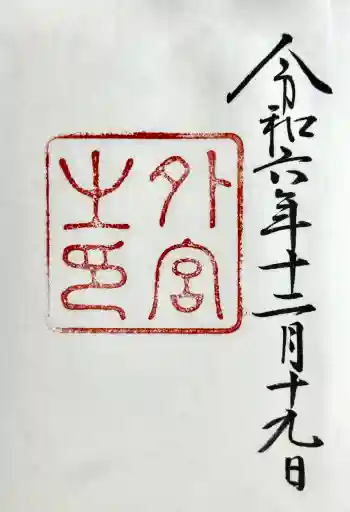 令和六年十二月十九日
外宮
之印